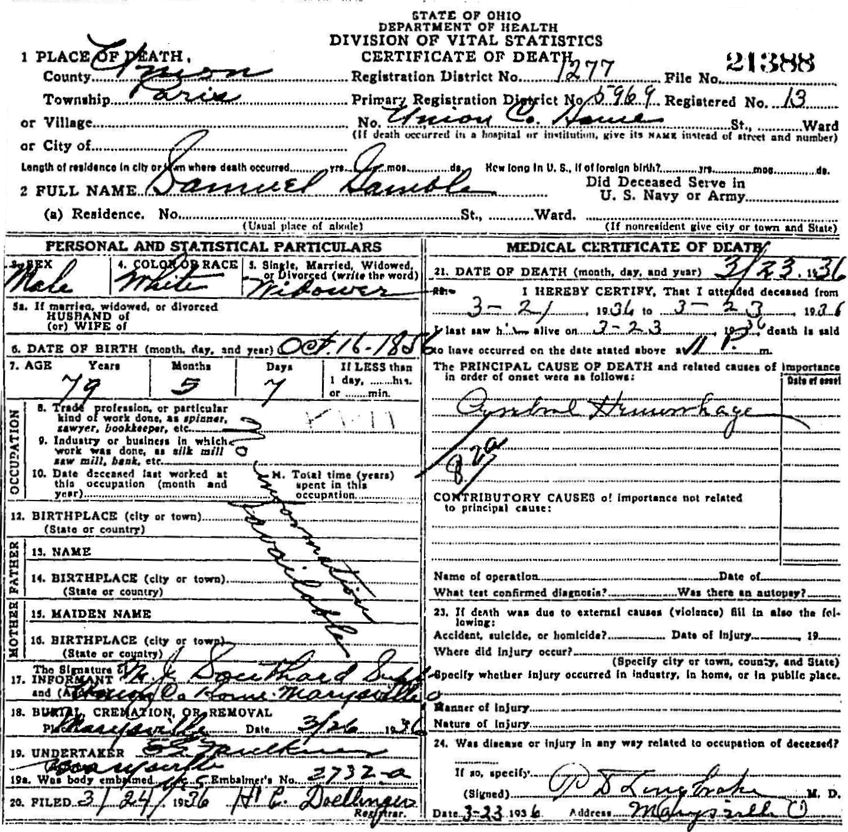 STATE OF OHIO
DEPARTMENT OF HEALTH
DIVISION OF VITAL STATISTICS
CERTIFICATE OF DEATH
1 PLACE OF DEATH,
County Union Registration District No. 1277 File No. 21388
Township Paris Primary Registration District No. 5969 Registered No. 13
or Village No. Union Co. Home St., Ward
(If death occurred in a hospital or institution, give its NAME instead of street and number)
or City of
Length of residence in city or town where death occurred yrs. mos. ds. How long in U. S., if of foreign birth? yrs. mos. ds.
2 FULL NAME Samuel Gamble Did Deceased Serve in
U. S. Navy or Army
(a) Residence. No. St., Ward.
(Usual place of abode) (If nonresident give city or town and State)
PERSONAL AND STATISTICAL PARTICULARS
3. SEX 4. COLOR OR RACE 5. Single, Married, Widowed,
or Divorced (write the word)
Male White Widower
5a. If married, widowed, or divorced
HUSBAND of
(or) WIFE of
6. DATE OF BIRTH (month, day, and year) Oct. 16-1856
7. AGE Years Months Days If LESS than
1 day, hrs.
or min.
79 5 7
OCCUPATION
8. Trade, profession, or particular
kind of work done, as spinner,
sawyer, bookkeeper, etc.
9. Industry or business in which
work was done, as silk mill
saw mill, bank, etc.
10. Date deceased last worked at
this occupation (month and
year)
11. Total time (years)
spent in this
occupation
No information available
12. BIRTHPLACE (city or town)
(State or country)
FATHER
13. NAME
14. BIRTHPLACE (city or town)
(State or country)
MOTHER
15. MAIDEN NAME
16. BIRTHPLACE (city or town)
(State or country)
The Signature of
17. INFORMANT Southard Supt
and Union Co Home Marysville O
18. BURIAL, CREMATION, OR REMOVAL
Marysville Date 3/26 1936
19. UNDERTAKER Faulkner
Marysville
19a. Was body embalmed yes Embalmer's No. 2732-a
20. FILED 3/24/1936 H. C. Doellinger
Registrar.
MEDICAL CERTIFICATE OF DEATH
21. DATE OF DEATH (month, day, and year) 3/23 1936
I HEREBY CERTIFY, That I attended deceased from
3-21 1936 to 3-23 1936
I last saw him alive on 3-23 1936 death is said
to have occurred on the date stated above at 11 P. m.
The PRINCIPAL CAUSE OF DEATH and related causes of importance
in order of onset were as follows:
Date of onset
Cerebral Hemorrhage
82a
CONTRIBUTORY CAUSES of importance not related
to principal cause:
Name of operation Date of
What test confirmed diagnosis? Was there an autopsy?
23. If death was due to external causes (violence) fill in also the following:
Accident, suicide, or homicide? Date of injury 19
Where did injury occur?
(Specify city or town, county, and State)
Specify whether injury occurred in industry, in home, or in public place.
Manner of injury
Nature of injury
24. Was disease or injury in any way related to occupation of deceased?
If so, specify
(Signed) M. D.
Date 3-23 1936 Address Marysville O